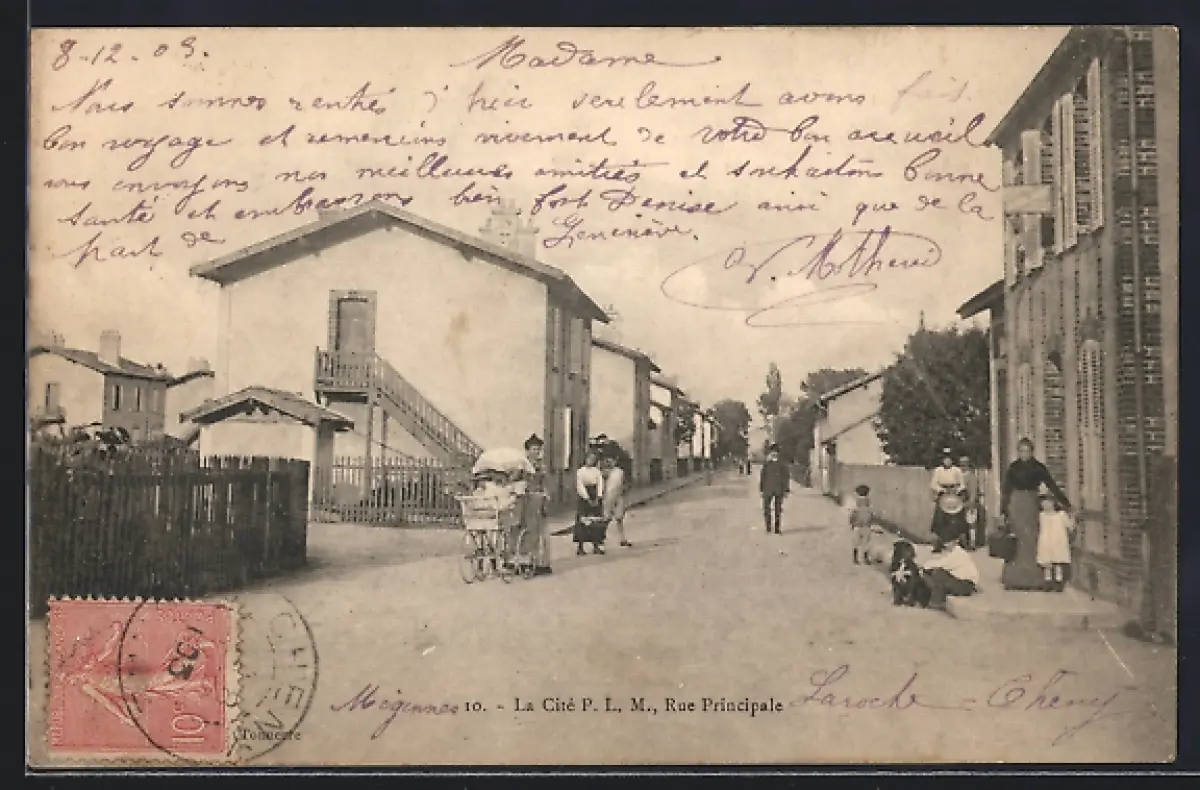 8-12-05.
Madame
Nous sommes rentrés hier seulement avons fait
bon voyage et remercions vivement de votre bon accueil
vous envoyons nos meilleures amitiés et souhaitons bonne
santé et embrassons bien fort Denise ainsi que de la
part de Geneviève.
Migennes 10. - La Cité P. L. M., Rue Principale Laroche - Cheny
10c
Tonnerre